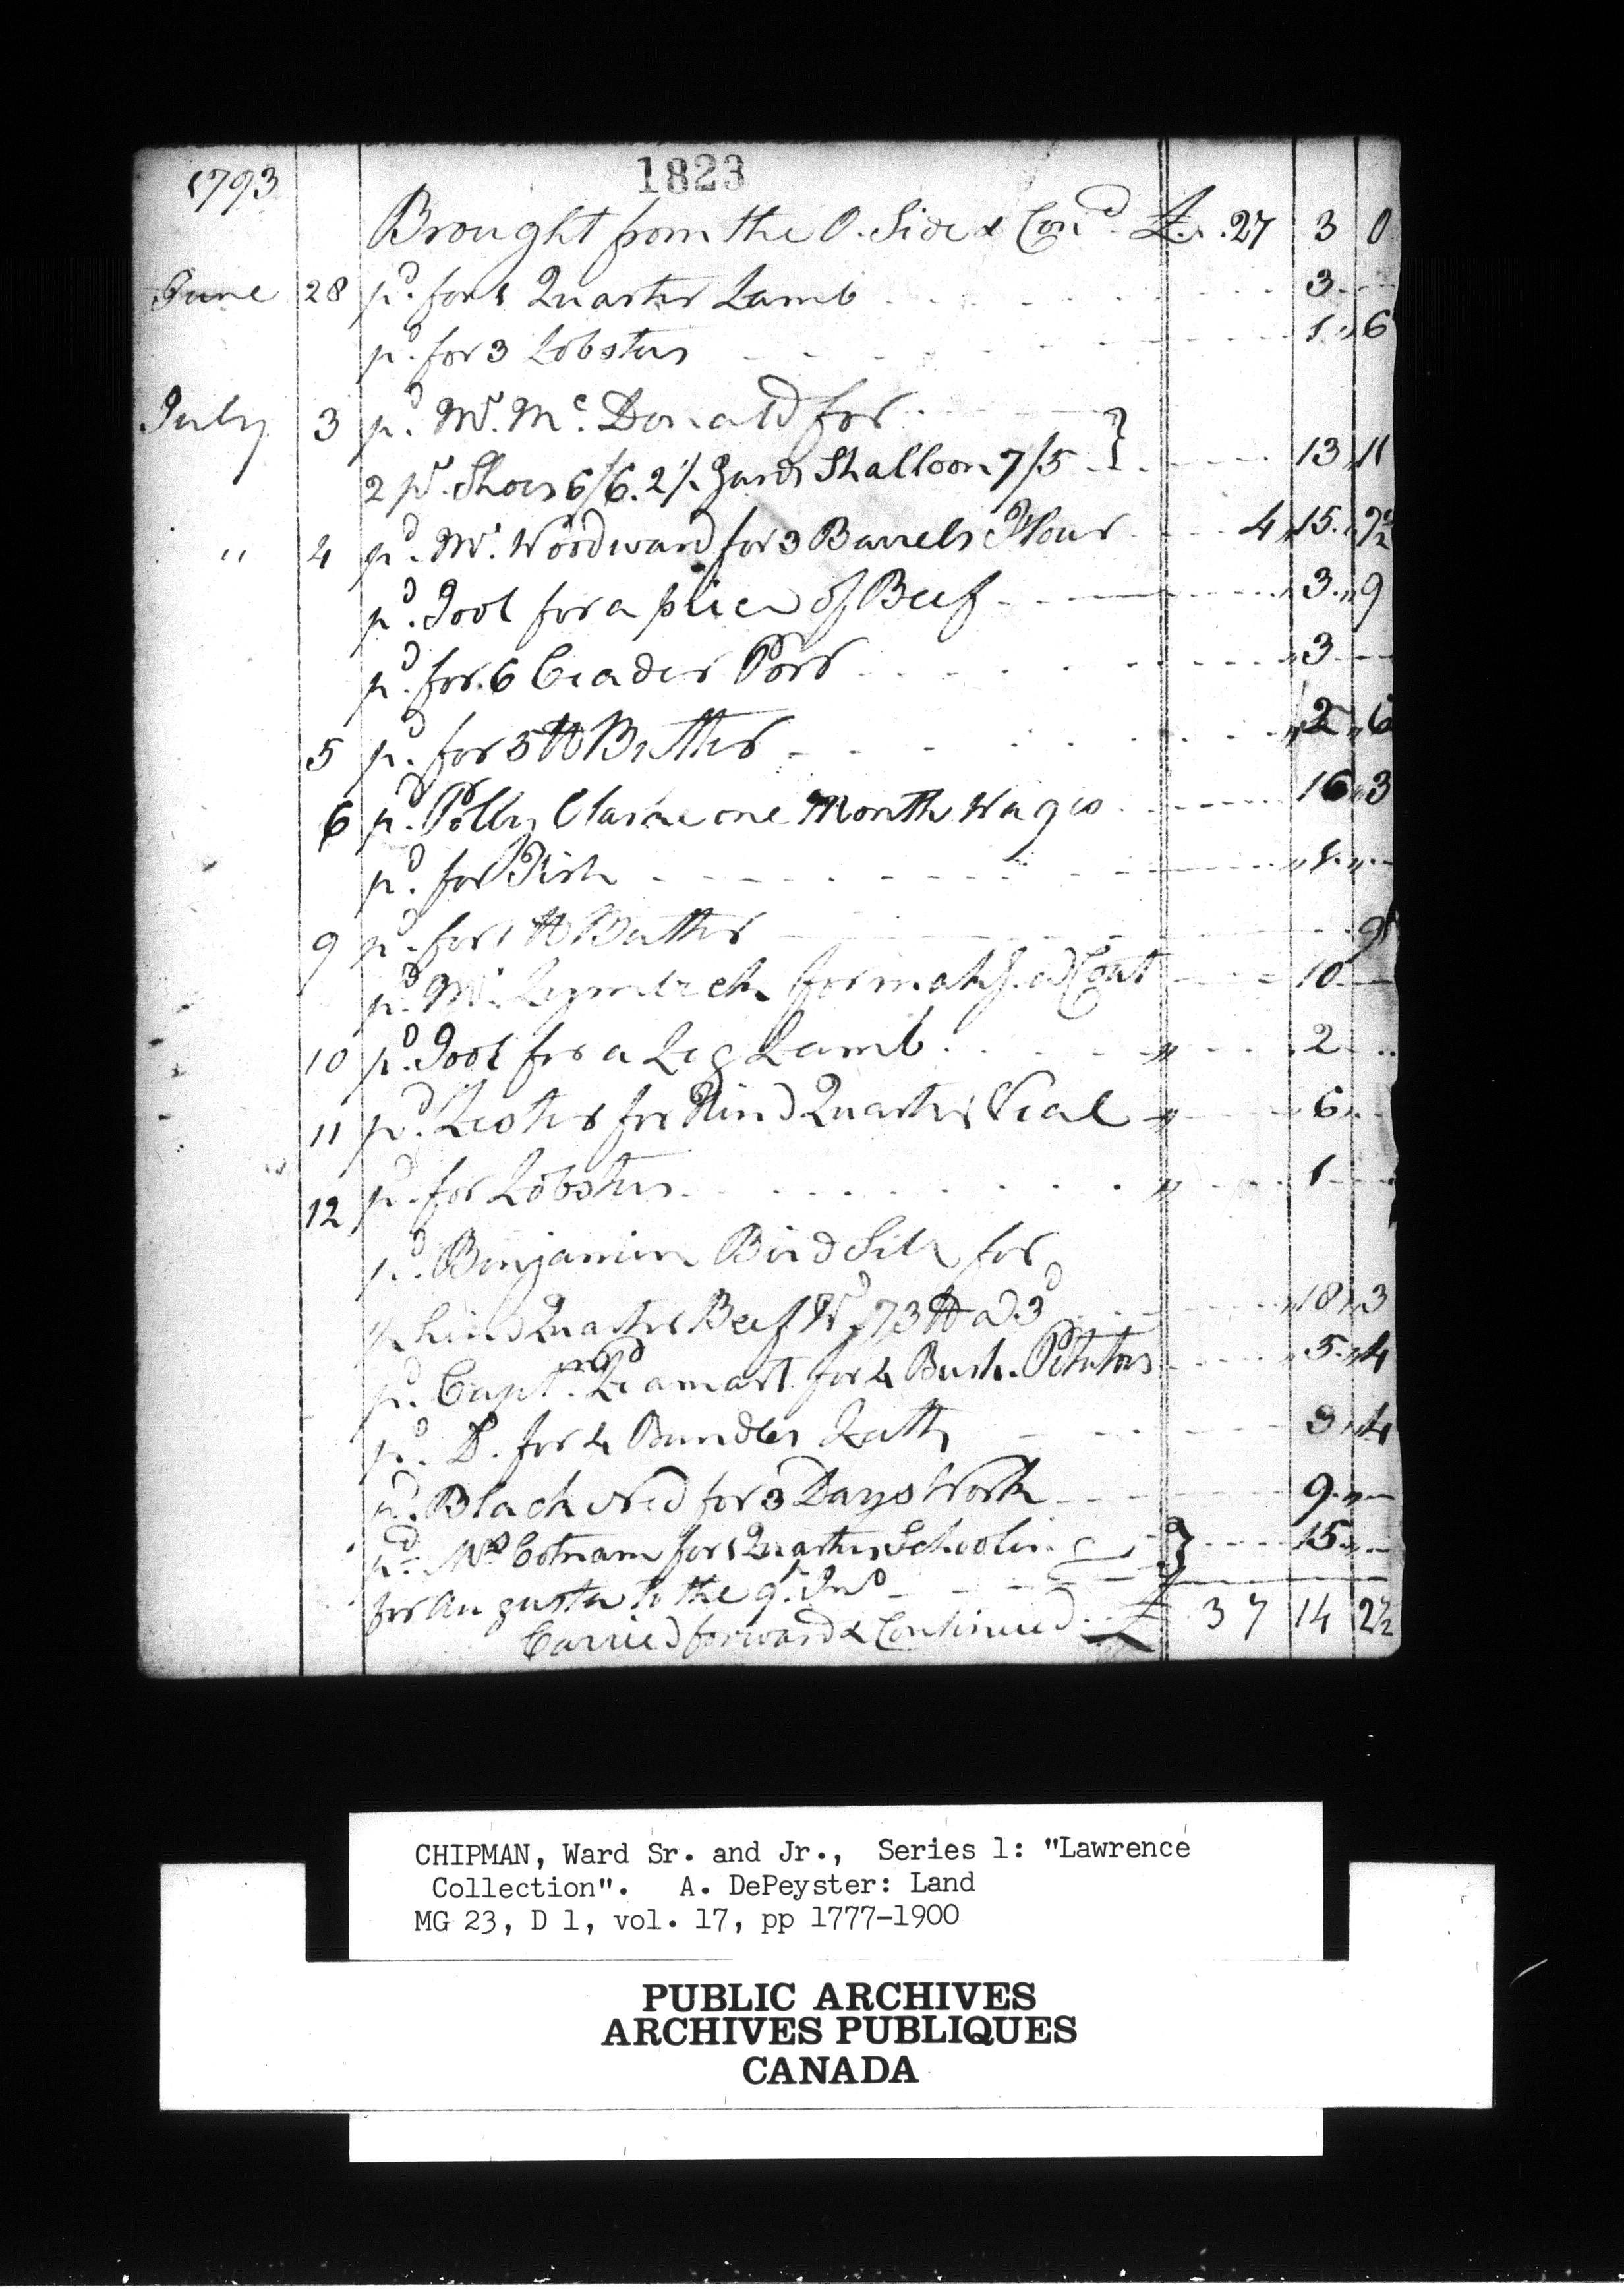 1823
1793
Brought from the O. Side & Con^d. £ 27 3 0
June 28 p^d. for 1 Quarter Lamb 3
p^d. for 3 Lobsters 1 6
July 3 p^d. M^r. M^c. Donald for
2 p^r. Shoes 6/6. 2½ Yards Shalloon 7/5 } 13 11
" 4 p^d. M^r. Woodward for 3 Barrels Flour 4 15 7½
p^d. Pool for a piece of Beef 3 9
p^d. for 6 Ceader 3
5 p^d. for 5 lb Butter 2 6
6 p^d. Polly Clarke one Month Wages 16 3
p^d. for Fish 1
9 p^d. for 1 lb Butter 9
p^d. M^r. for mak^g. a Coat 10
10 p^d. Pool for a Leg Lamb 2
11 p^d. Lester for Hind Quarter Veal 6
12 p^d. for Lobsters 1
p^d. Benjamin Birdsill for
hind Quarter Beef W^t. 73 lb a 3^d 18 3
p^d. Cap^t. for 4 Bush. Potatoes 5 4
p^d. D^o. for 4 Bundles Lath 3 4
p^d. Black Ned for 3 Days Work 9
p^d. M^rs Cotnam for 1 Quarter Schooling } 15
for Augusta to the 9^th. Ins^t
Carried forward & Continued £ 37 14 2½
CHIPMAN, Ward Sr. and Jr., Series 1: "Lawrence
Collection". A. DePeyster: Land
MG 23, D 1, vol. 17, pp 1777-1900
PUBLIC ARCHIVES
ARCHIVES PUBLIQUES
CANADA